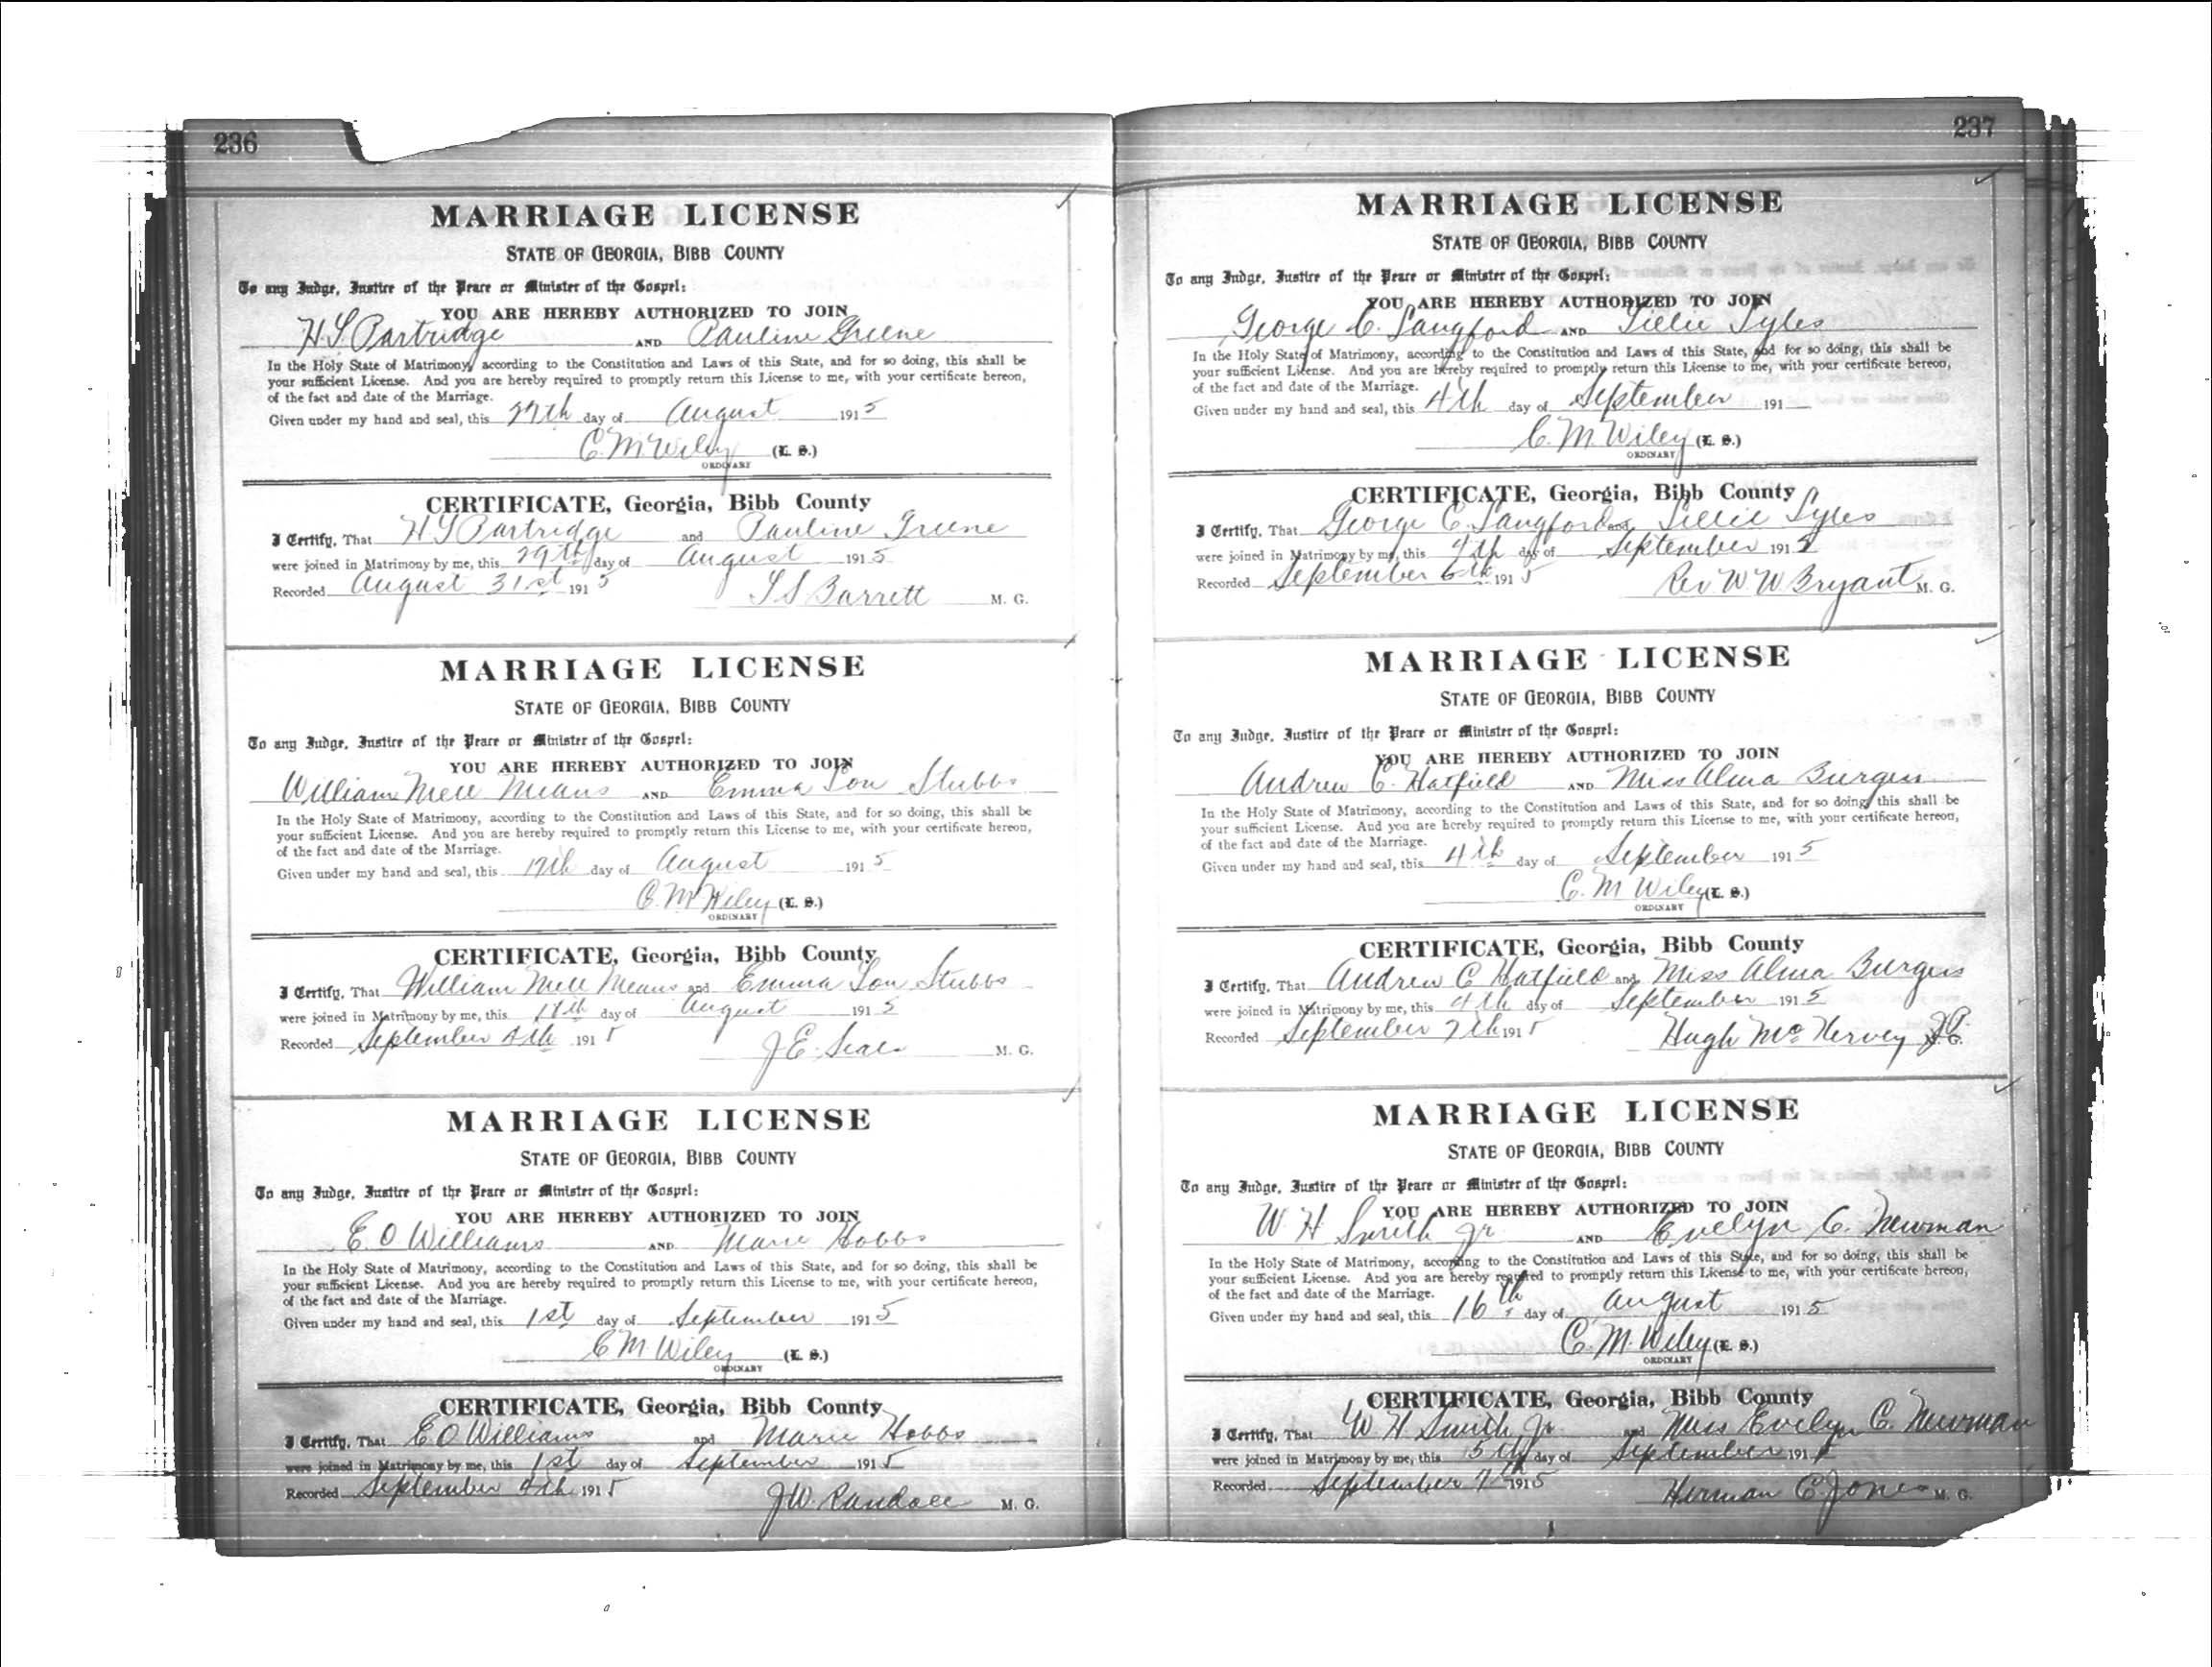 236
MARRIAGE LICENSE
STATE OF GEORGIA, BIBB COUNTY
To any Judge, Justice of the Peace or Minister of the Gospel:
YOU ARE HEREBY AUTHORIZED TO JOIN
H S Partridge AND Pauline Greene
In the Holy State of Matrimony, according to the Constitution and Laws of this State, and for so doing, this shall be
your sufficient License. And you are hereby required to promptly return this License to me, with your certificate hereon,
of the fact and date of the Marriage.
Given under my hand and seal, this 27th day of August 1915
C. M. Wiley (L. S.)
ORDINARY
CERTIFICATE, Georgia, Bibb County
I Certify, That H S Partridge and Pauline Greene
were joined in Matrimony by me, this 29th day of August 1915
Recorded August 31st 1915 T S Barrett M. G.
MARRIAGE LICENSE
STATE OF GEORGIA, BIBB COUNTY
To any Judge, Justice of the Peace or Minister of the Gospel:
YOU ARE HEREBY AUTHORIZED TO JOIN
William Mell Means AND Emma Lou Stubbs
In the Holy State of Matrimony, according to the Constitution and Laws of this State, and for so doing, this shall be
your sufficient License. And you are hereby required to promptly return this License to me, with your certificate hereon,
of the fact and date of the Marriage.
Given under my hand and seal, this 17th day of August 1915
C. M. Wiley (L. S.)
ORDINARY
CERTIFICATE, Georgia, Bibb County
I Certify, That William Mell Means and Emma Lou Stubbs
were joined in Matrimony by me, this 18th day of August 1915
Recorded September 4th 1915 J E Sears M. G.
MARRIAGE LICENSE
STATE OF GEORGIA, BIBB COUNTY
To any Judge, Justice of the Peace or Minister of the Gospel:
YOU ARE HEREBY AUTHORIZED TO JOIN
E. O Williams AND Marie Hobbs
In the Holy State of Matrimony, according to the Constitution and Laws of this State, and for so doing, this shall be
your sufficient License. And you are hereby required to promptly return this License to me, with your certificate hereon,
of the fact and date of the Marriage.
Given under my hand and seal, this 1st day of September 1915
C M Wiley (L. S.)
ORDINARY
CERTIFICATE, Georgia, Bibb County
I Certify, That E O Williams and Marie Hobbs
were joined in Matrimony by me, this 1st day of September 1915
Recorded September 4th 1915 J W. Randall M. G.
237
MARRIAGE LICENSE
STATE OF GEORGIA, BIBB COUNTY
To any Judge, Justice of the Peace or Minister of the Gospel:
YOU ARE HEREBY AUTHORIZED TO JOIN
George C. Langford AND Lillie Lyles
In the Holy State of Matrimony, according to the Constitution and Laws of this State, and for so doing, this shall be
your sufficient License. And you are hereby required to promptly return this License to me, with your certificate hereon,
of the fact and date of the Marriage.
Given under my hand and seal, this 4th day of September 191
C. M. Wiley (L. S.)
ORDINARY
CERTIFICATE, Georgia, Bibb County
I Certify, That George C. Langford and Lillie Lyles
were joined in Matrimony by me, this day of September 1915
Recorded September 6th 1915 Rev. W. W Bryant M. G.
MARRIAGE LICENSE
STATE OF GEORGIA, BIBB COUNTY
To any Judge, Justice of the Peace or Minister of the Gospel:
YOU ARE HEREBY AUTHORIZED TO JOIN
Andrew C. Hatfield AND Miss Alma Burgess
In the Holy State of Matrimony, according to the Constitution and Laws of this State, and for so doing, this shall be
your sufficient License. And you are hereby required to promptly return this License to me, with your certificate hereon,
of the fact and date of the Marriage.
Given under my hand and seal, this 4th day of September 1915
C. M Wiley (L. S.)
ORDINARY
CERTIFICATE, Georgia, Bibb County
I Certify, That Andrew C Hatfield and Miss Alma Burgess
were joined in Matrimony by me, this 4th day of September 1915
Recorded September 7th 1915 Hugh Mc Kervey J.P.
MARRIAGE LICENSE
STATE OF GEORGIA, BIBB COUNTY
To any Judge, Justice of the Peace or Minister of the Gospel:
YOU ARE HEREBY AUTHORIZED TO JOIN
W H Smith Jr AND Evelyn C. Newman
In the Holy State of Matrimony, according to the Constitution and Laws of this State, and for so doing, this shall be
your sufficient License. And you are hereby required to promptly return this License to me, with your certificate hereon,
of the fact and date of the Marriage.
Given under my hand and seal, this 16th day of August 1915
C. M. Wiley (L. S.)
ORDINARY
CERTIFICATE, Georgia, Bibb County
I Certify, That W H Smith Jr. and Miss Evelyn C. Newman
were joined in Matrimony by me, this 5th day of September 1915
Recorded September 7th 1915 Herman C. Jones M. G.